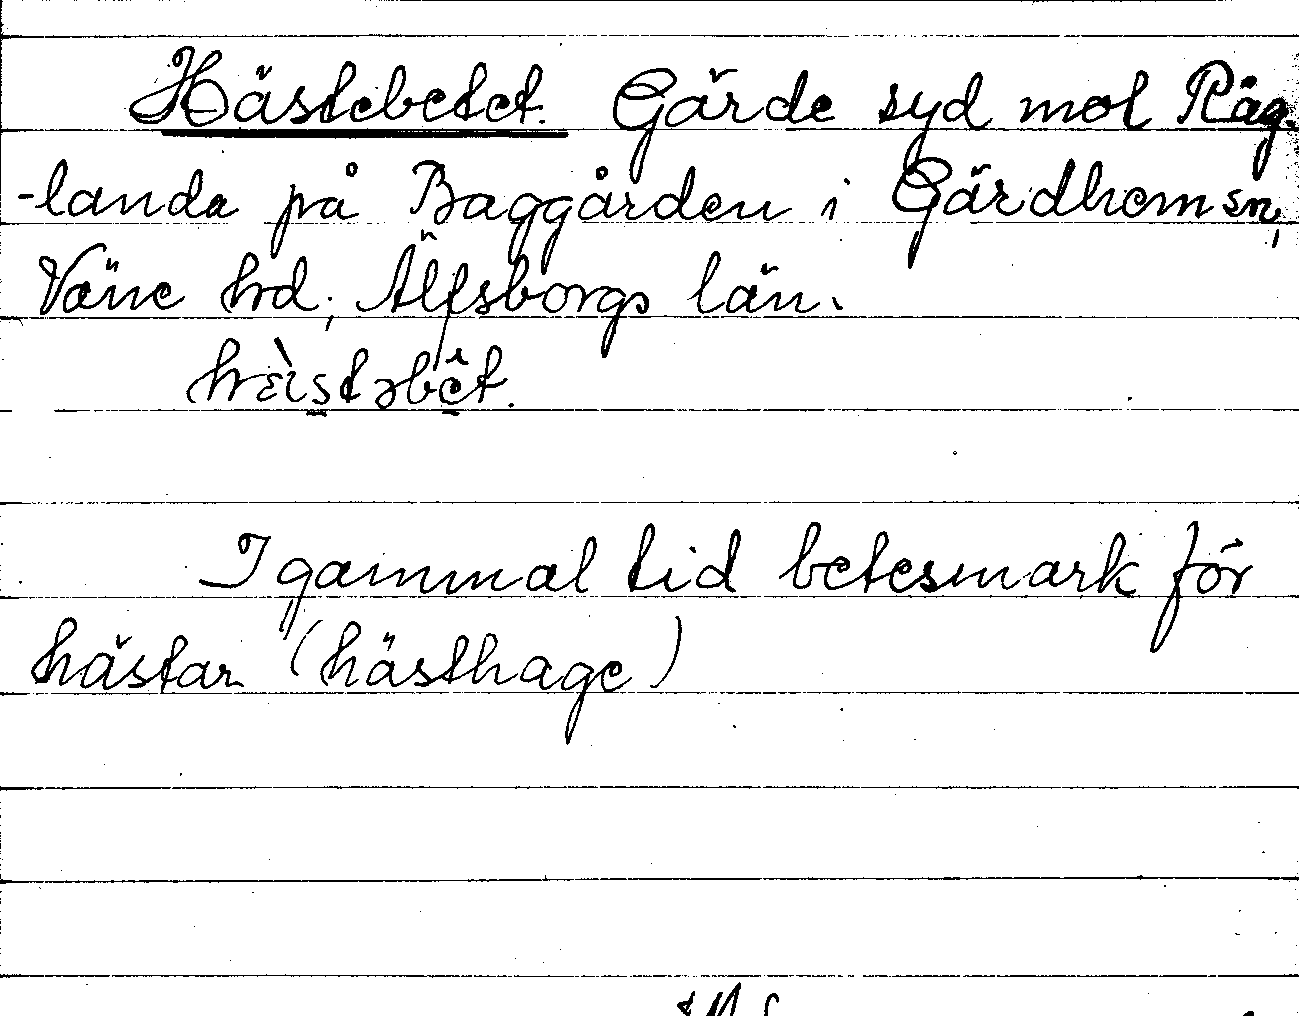 Hästebetet. Gärde syd mot Råg-
-landa på Baggården i Gärdhem sn,
Väne hrd, Älfsborgs län.
I gammal tid betesmark för
hästar (hästhage)